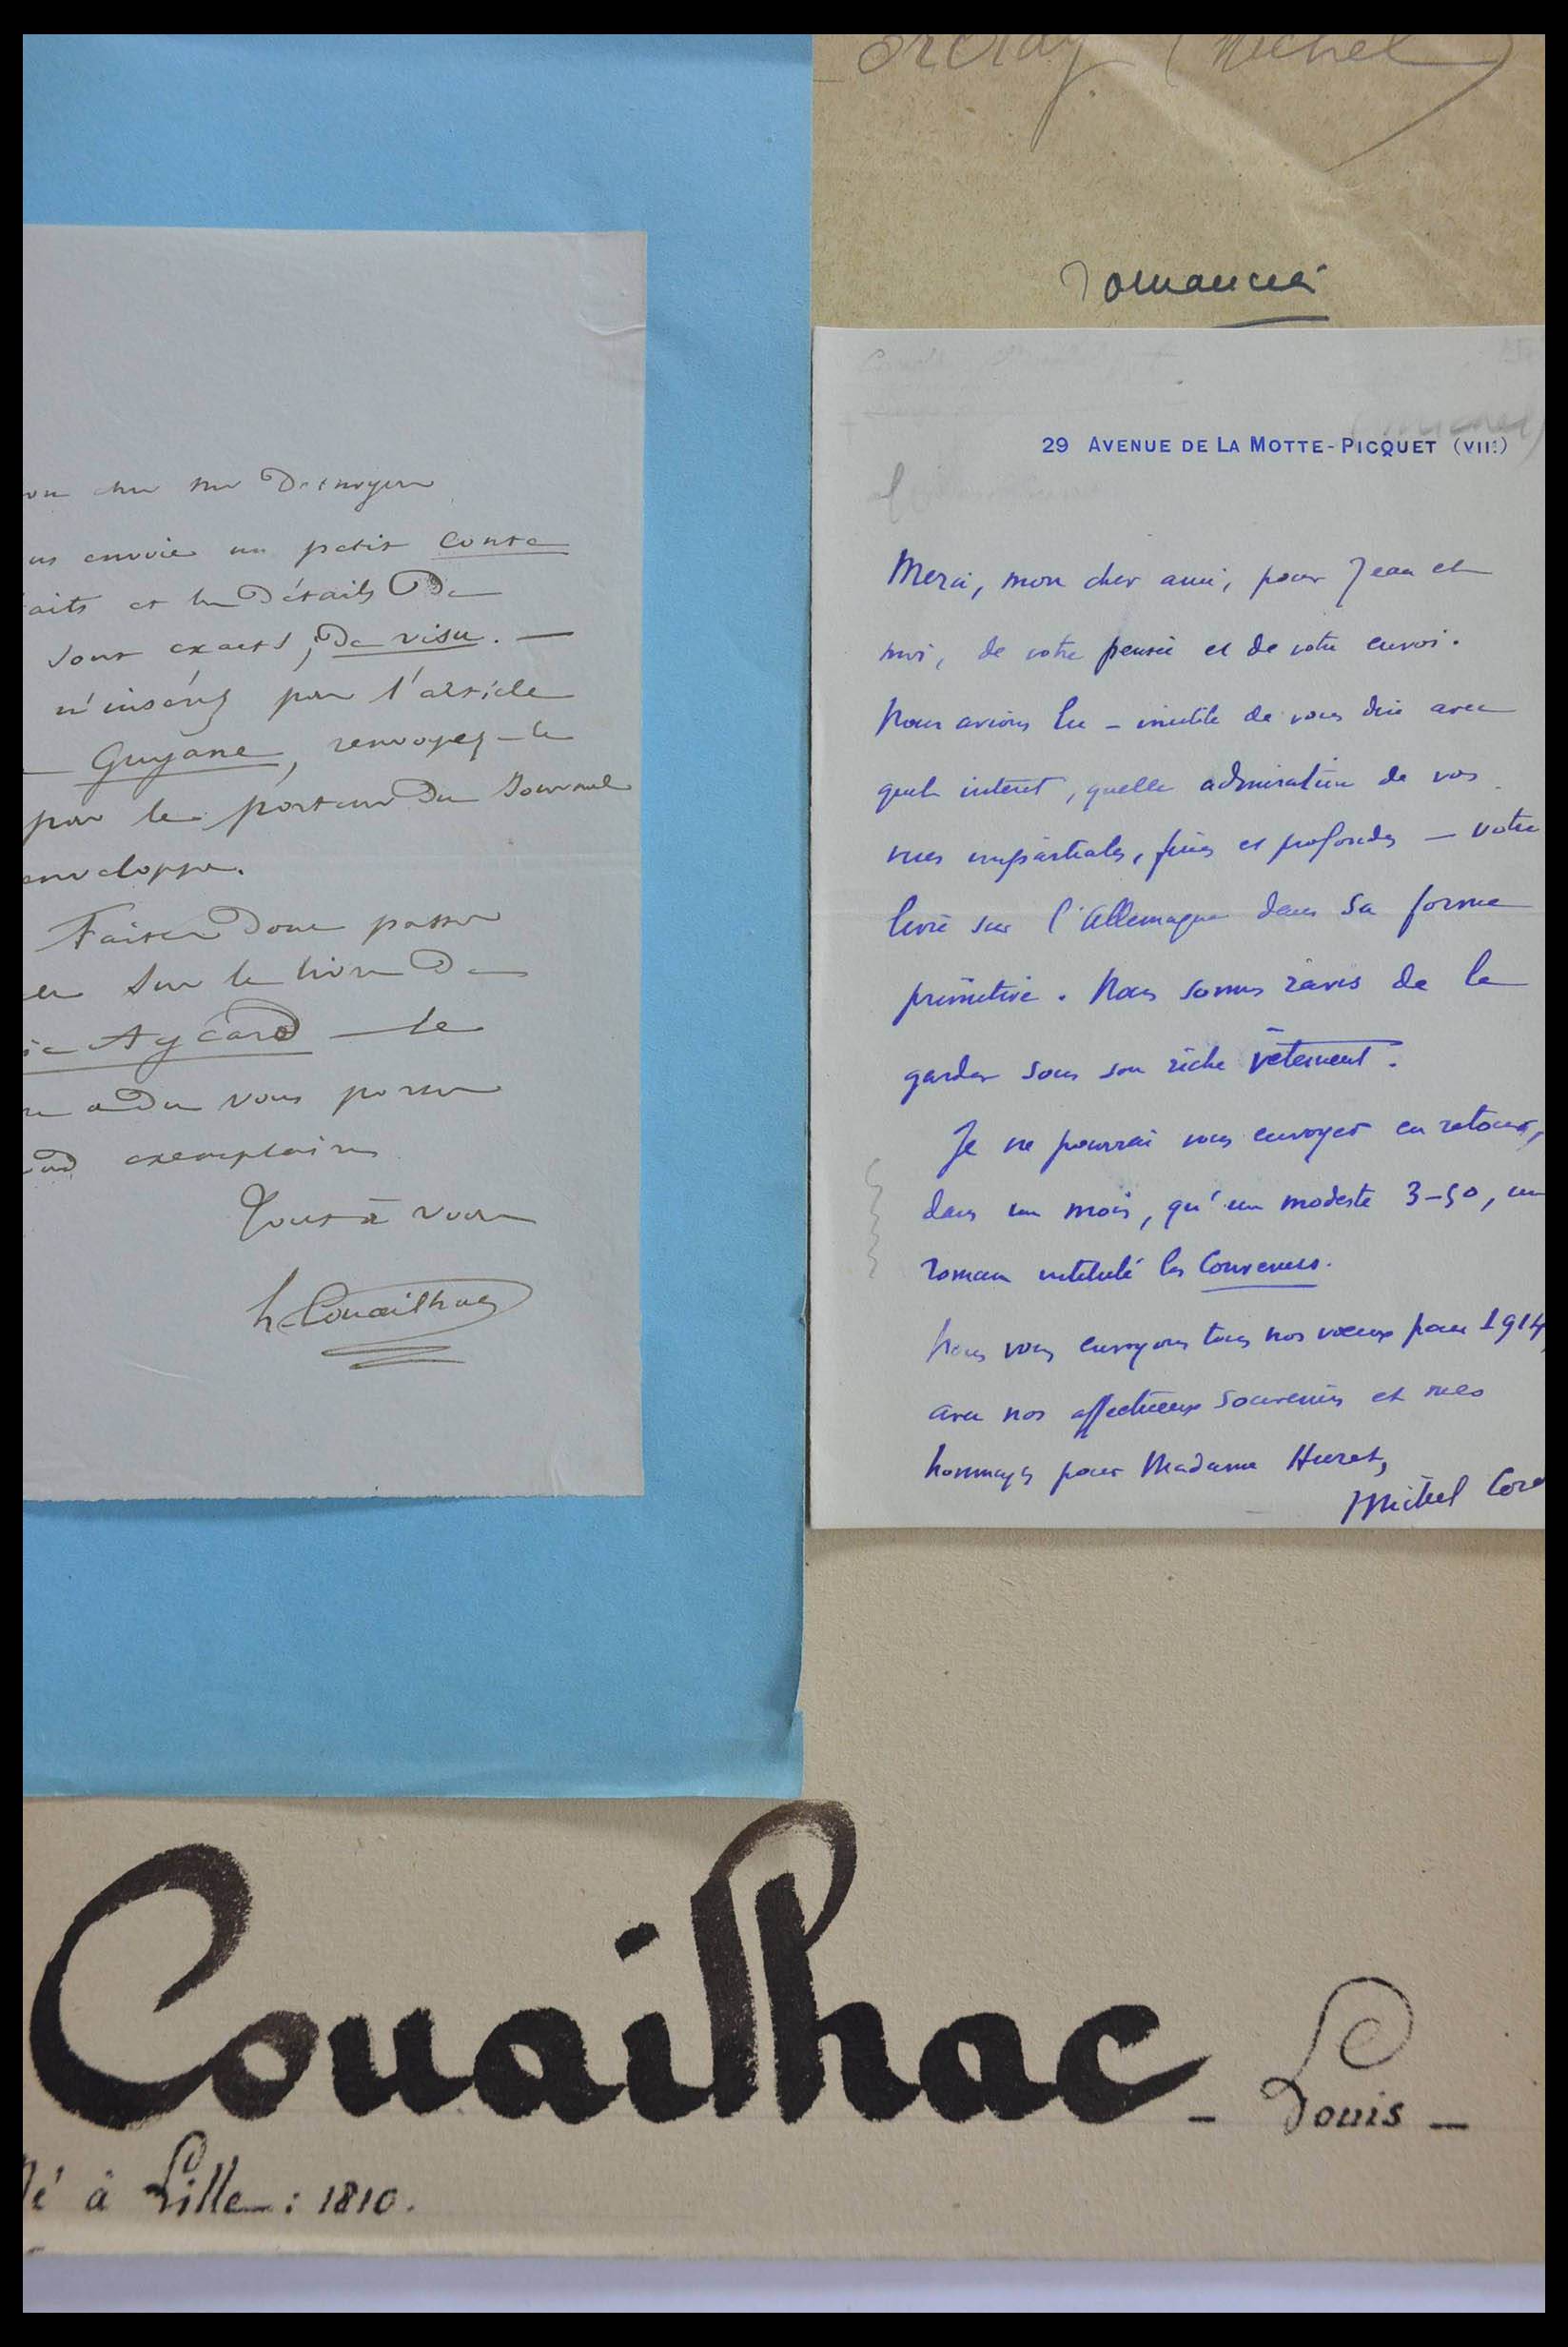 (Michel)
romancier
29 AVENUE DE LA MOTTE-PICQUET (VIIE)
Merci, mon cher ami, pour Jean et
moi, de votre pensée et de votre envoi.
Nous avions lu – inutile de vous dire avec
quel intérêt, quelle admiration de vos
vues impartiales, fines et profondes – votre
livre sur l'Allemagne dans sa forme
primitive. Nous sommes ravis de le
garder sous son riche vêtement.
Je ne pourrai vous envoyer en retour,
dans un mois, qu'un modeste 3-50, un
roman intitulé les Convenus.
Nous vous envoyons tous nos vœux pour 1914,
avec nos affectueux souvenirs et mes
hommages pour Madame Huret,
Michel
cher Mr Desnoyers
envoie un petit conte
et les Détails De
sont exacts, De visu. —
n'insérez pas l'article
Guyane, renvoyez-le
par le porteur Du Journal
enveloppe.
Faites Donc passer
sur le livre De
Aycard — le
a Du vous porter
exemplaires
Tout à vous
L. Couailhac
Couailhac - Louis -
Né à Lille : 1810.